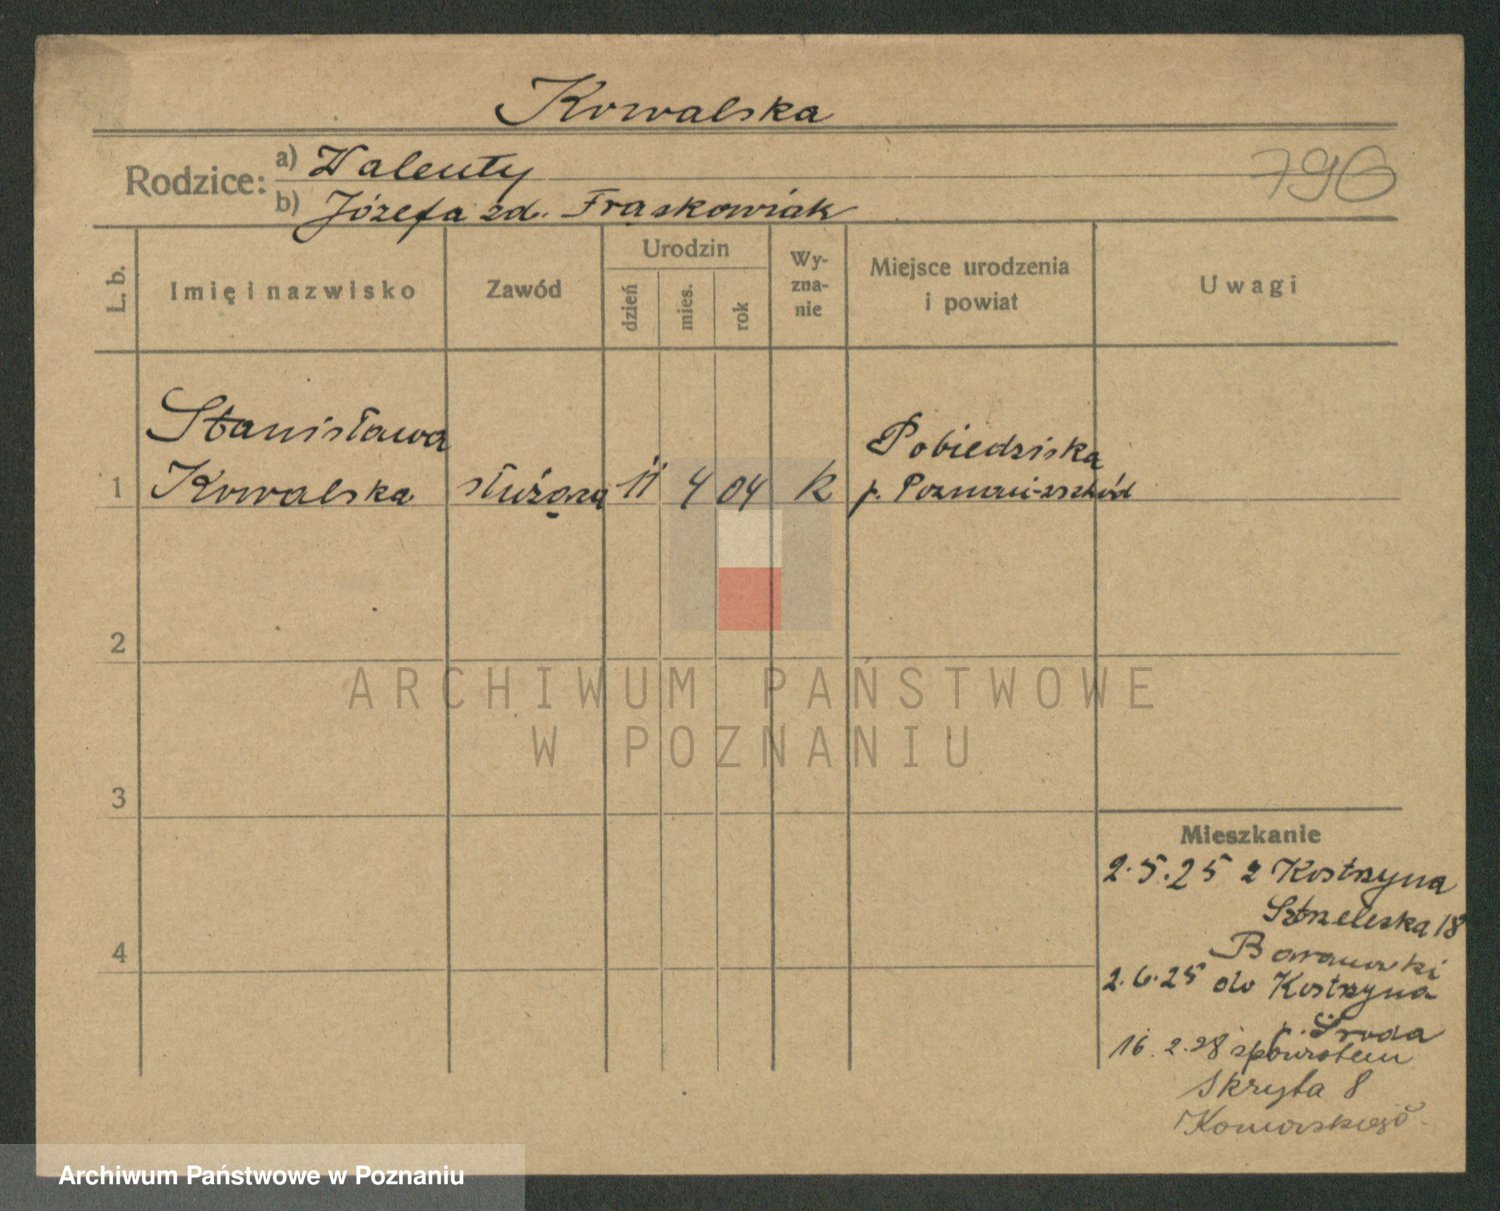 Kowalska
796
Rodzice:
a) Walenty
b) Józefa zd. Frąskowiak
L. b.
Imię i nazwisko
Zawód
Urodzin
dzień
mies.
rok
Wy-
zna-
nie
Miejsce urodzenia
i powiat
Uwagi
1
Stanisława
Kowalska
służąca
11
4
04
k
Pobiedziska
p. Poznań-wschód
2
3
4
Mieszkanie
2.5.25 z Kostrzyna
Strzelecka 18
Baranowski
2.6.25 do Kostrzyna
p. Środa
16.2.28 zpowrotem
Skryta 8
ARCHIWUM PAŃSTWOWE
W POZNANIU
Archiwum Państwowe w Poznaniu